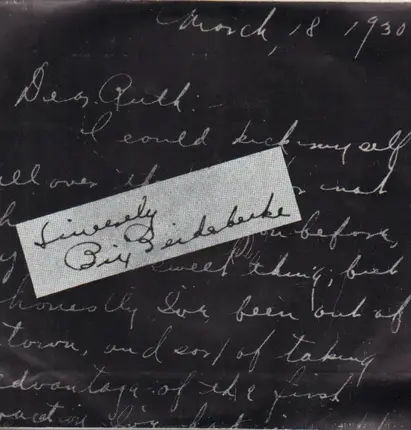 March, 18 1930
Dear Ruth.
I could kick myself
all over the for not
Sincerely
Bix Beiderbecke
you before,
sweet thing, but
honestly I've been out of
town, and sort of taking
advantage of the first
vacation I've had in